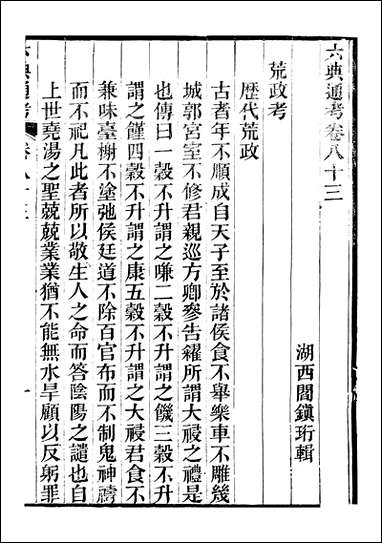 六典通考卷八十三
湖西閻鎮珩輯
荒政考
歷代荒政
古者年不順成自天子至於諸侯食不舉樂車不雕幾
城郭宮室不修君親巡方卿參告糴所謂大祲之禮是
也傳曰一穀不升謂之嗛二穀不升謂之饑三穀不升
謂之饉四穀不升謂之康五穀不升謂之大祲君食不
兼味臺榭不塗弛侯廷道不除百官布而不制鬼神禱
而不祀凡此者所以敬生人之命而答陰陽之譴也自
上世堯湯之聖兢兢業業猶不能無水旱顧以反躬罪
六典通考
卷八十三
一